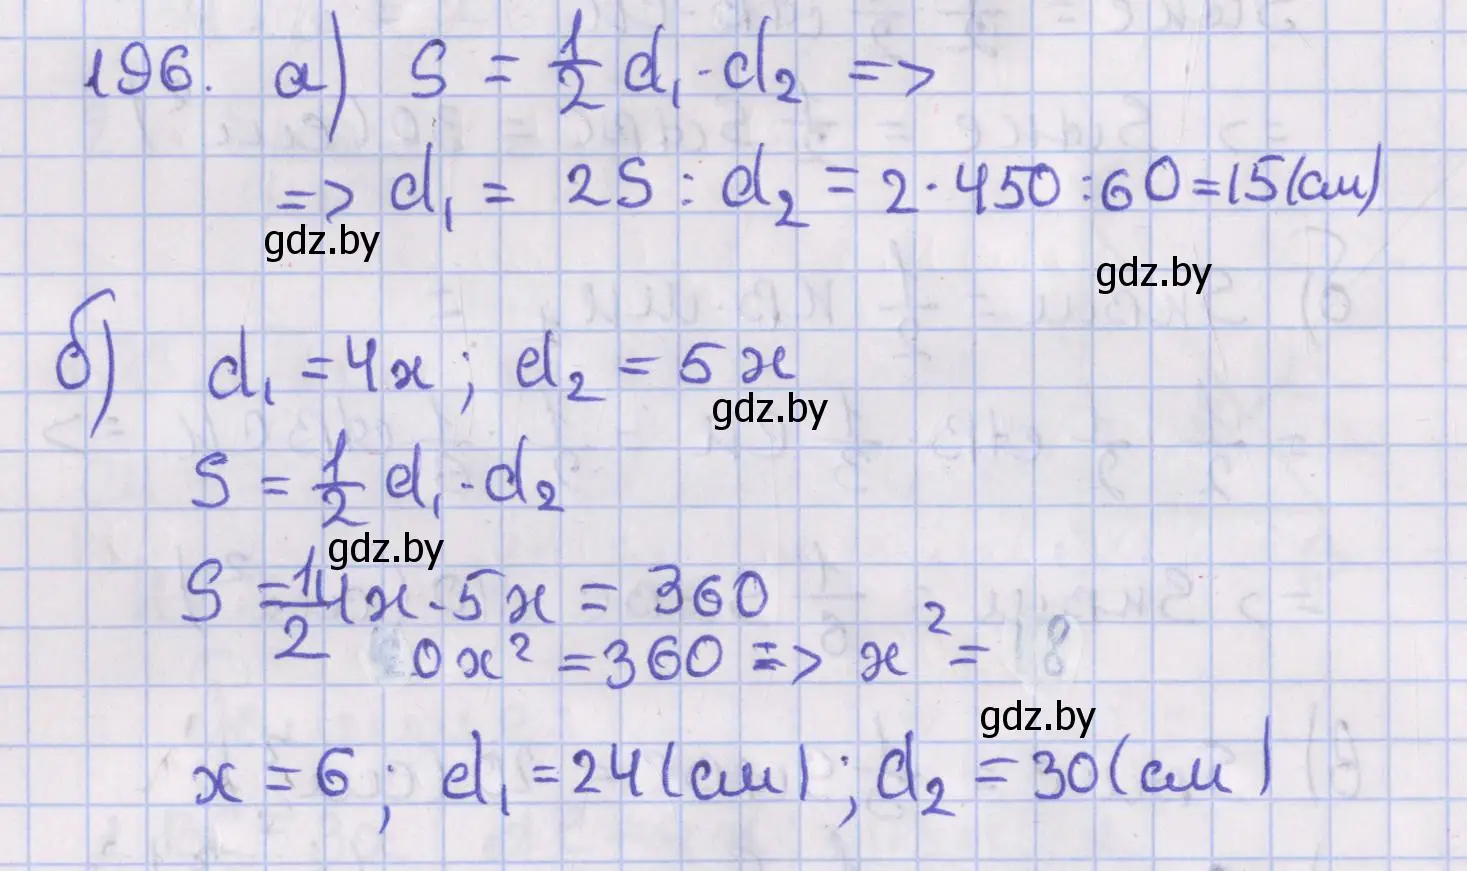 196. а) S = 1/2 d₁ · d₂ =>
=> d₁ = 2S : d₂ = 2 · 450 : 60 = 15 (см)
gdz.by
gdz.by
б) d₁ = 4x ; d₂ = 5x
gdz.by
S = 1/2 d₁ · d₂
gdz.by
S = 1/2 4x · 5x = 360
0x² = 360 => x² = 18
gdz.by
x = 6 ; d₁ = 24 (см) ; d₂ = 30 (см)